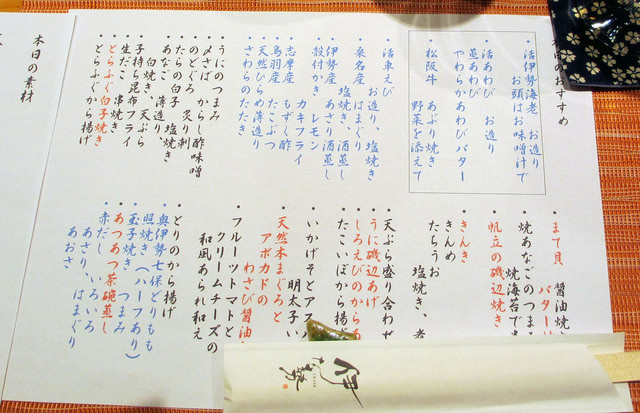 活伊勢海老 お造り
お頭はお味噌汁で
活あわび お造り
蒸あわび
やわらかあわびバター
松阪牛 あぶり焼き
野菜を添えて
活車えび
お造り、塩焼き
桑名産 はまぐり
塩焼き、酒蒸し
伊勢産 あさり酒蒸し
殻付かき レモン
カキフライ
志摩産 もずく酢
鳥羽産 たこぶつ
天然ひらめ薄造り
さわらのたたき
うにのつまみ
〆さば からし酢味噌
のどぐろ 炙り刺
たらの白子 塩焼き
あなご 薄造り、
白焼き、天ぷら
子持ち昆布フライ
生だこ 串焼き
とらふぐ白子焼き
とらふぐから揚げ
まて貝 醤油焼
バター
焼あなごのつま
焼海苔で
帆立の磯辺焼き
きんき
きんめ
たちうお
塩焼き、
天ぷら盛り合わせ
うに磯辺あげ
しろえびのから
たこいぼから揚
いかげそとアス
明太子い
天然本まぐろと
アボカドの
わさび醤油
フルーツトマトと
クリームチーズの
和風あられ和え
とりのから揚げ
奥伊勢七保どりもも
照焼き（ハーフあり）
玉子焼き つまみ
あつあつ茶碗蒸し
赤だし いろいろ
あさり、はまぐり
あおさ
本日の素材
伊勢